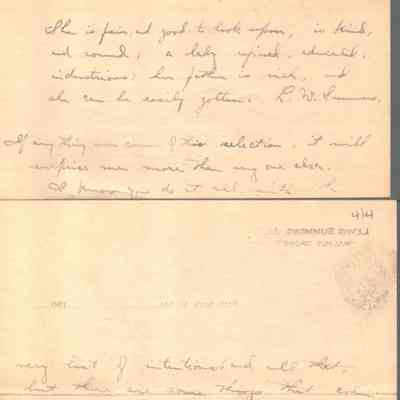 She is fair and good to look upon, is kind,
and sound, a lady refined, educated,
industrious; her father is rich, and
she can be easily gotten. L. W. Summers.
If anything can come of this selection, it will
surprise me more than any one else.
I know you do it all with the
4/4
LEWIS SUMMERS
very best of intentions and all that,
but there are some things that even